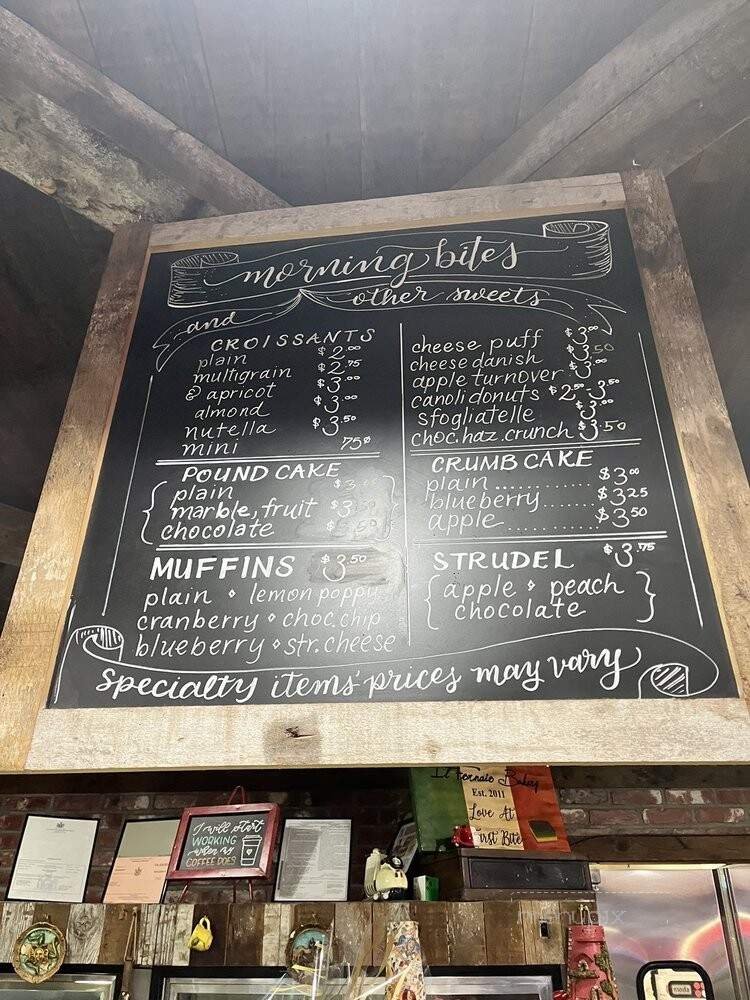 morning bites
and other sweets
CROISSANTS
plain $2.00
multigrain $2.75
apricot $3.00
almond $3.00
nutella $3.50
mini 75¢
POUND CAKE
plain
marble, fruit
chocolate
MUFFINS $3.50
plain • lemon poppy
cranberry • choc.chip
blueberry • str.cheese
cheese puff $3.00
cheese danish 3.50
apple turnover
canoli donuts
sfogliatelle
choc.haz.crunch 3.50
CRUMB CAKE
plain .......... $3.00
blueberry ....... $3.25
apple .......... $3.50
STRUDEL $3.75
apple • peach
chocolate
Specialty items' prices may vary
Il Fornaio Bakery
Est. 2011
Love At
First Bite
I will start
WORKING
when my
COFFEE DOES
menupix